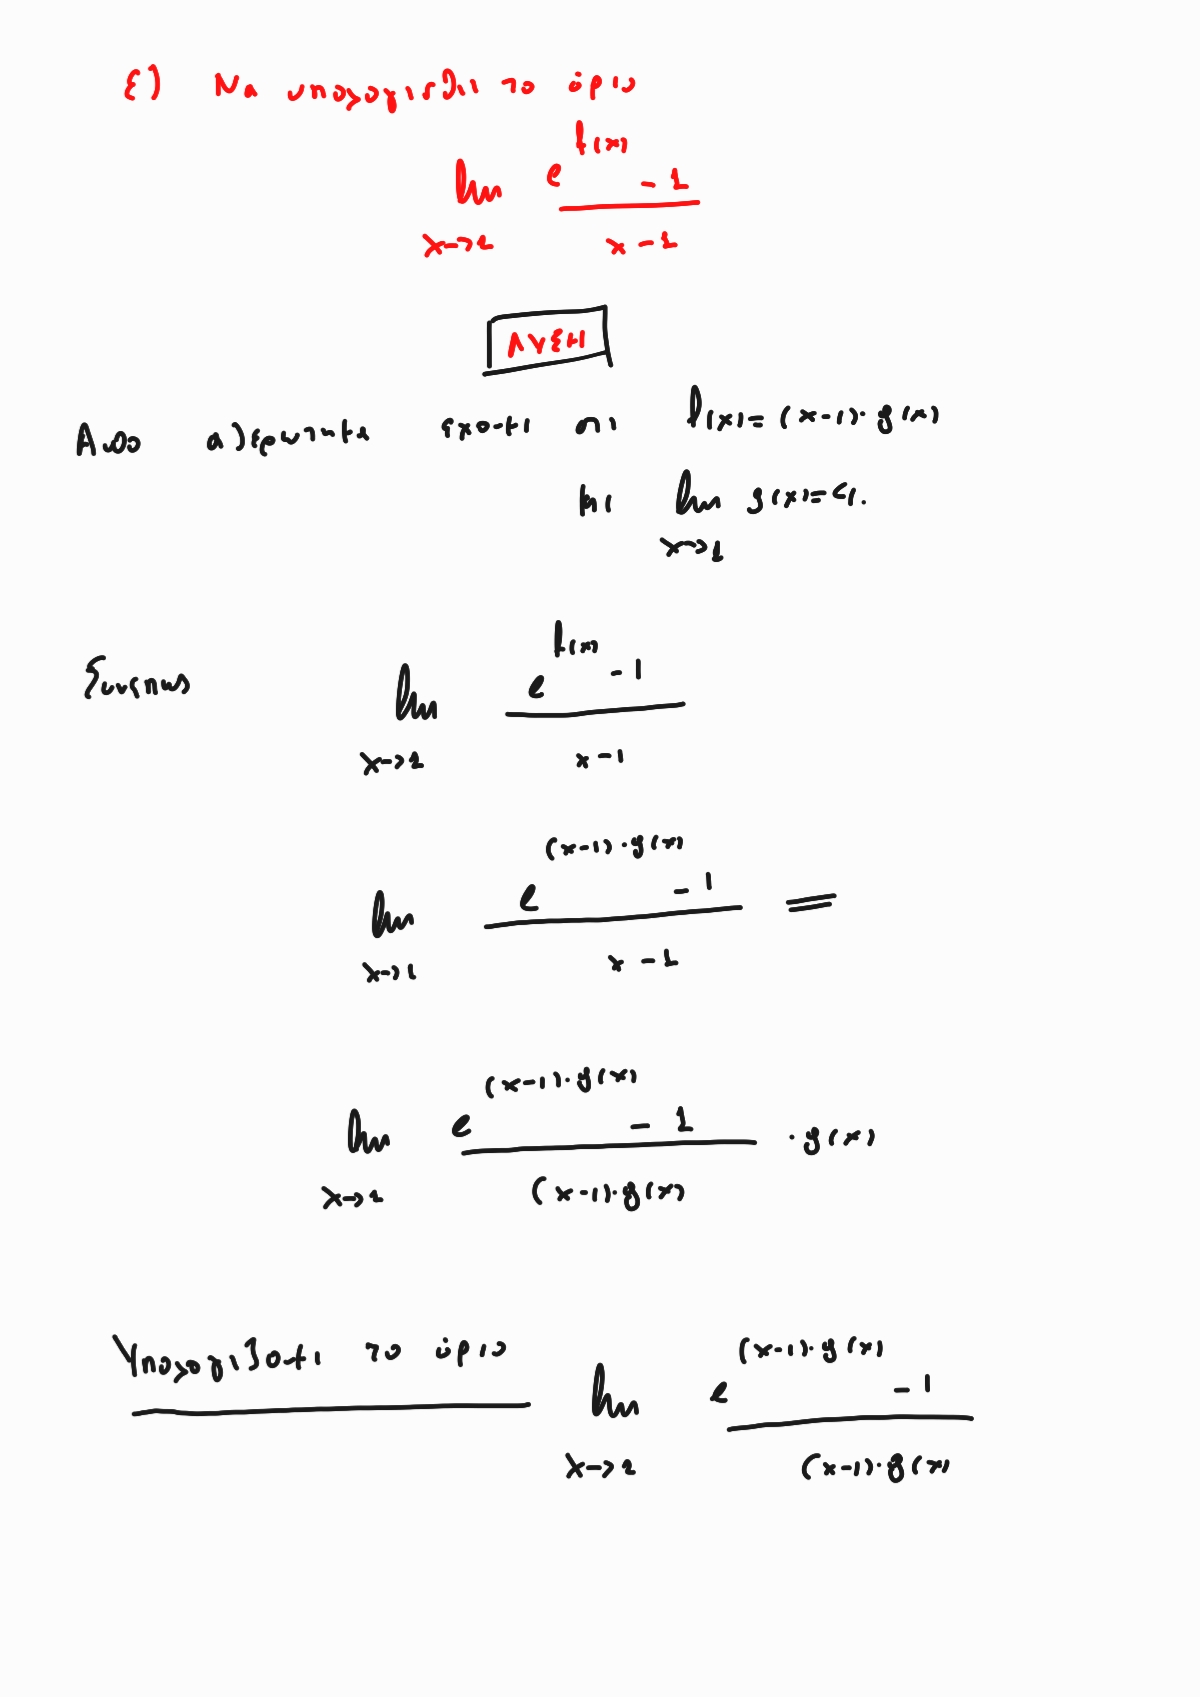 ε) Να υπολογισθει το όριο
lim e^f(x) - 1
x→1 x - 1
ΛΥΣΗ
Απο α) ερωτημα εχουμε οτι f(x) = (x-1)·g(x)
και lim g(x) = 4.
x→1
Συνεπως lim e^f(x) - 1
x→1 x - 1
lim e^(x-1)·g(x) - 1 =
x→1 x - 1
lim e^(x-1)·g(x) - 1 · g(x)
x→1 (x-1)·g(x)
Υπολογιζουμε το όριο lim e^(x-1)·g(x) - 1
x→1 (x-1)·g(x)